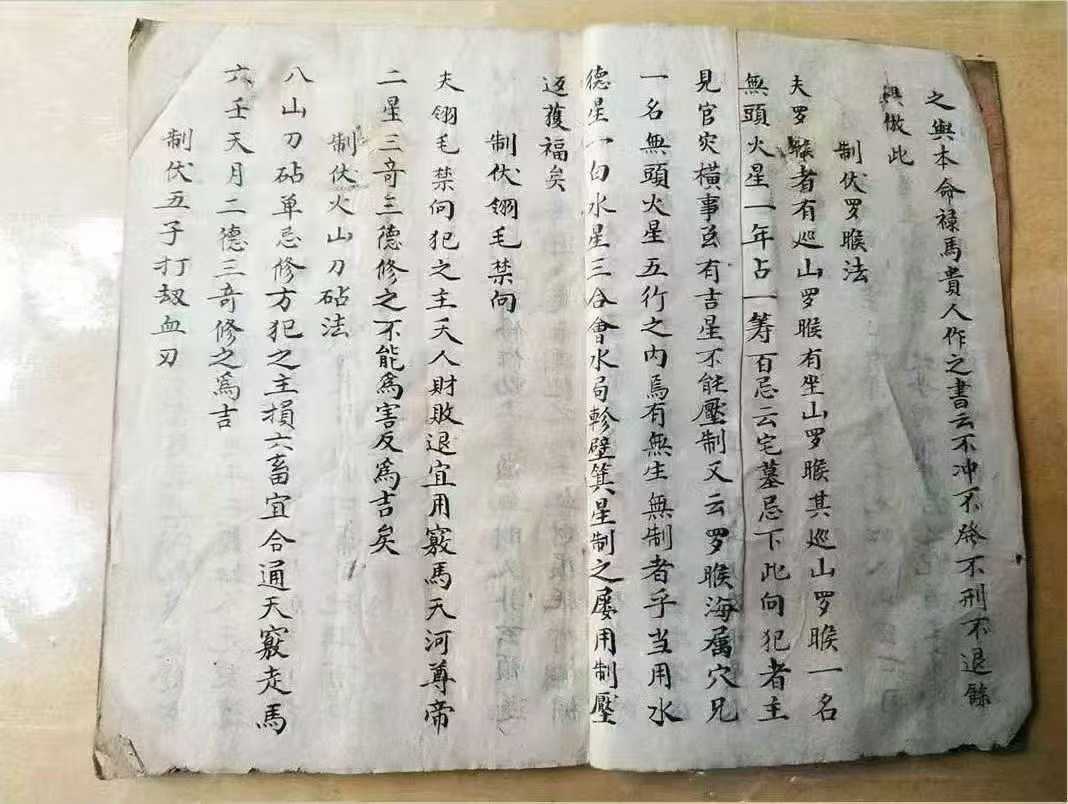 之與本命禄馬貴人作之書云不冲不發不刑不退餘
俱倣此
制伏罗睺法
夫罗睺者有巡山罗睺有坐山罗睺其巡山罗睺一名
無頭火星一年占一筹百忌云宅墓忌下此向犯者主
見官灾橫事虽有吉星不能壓制又云罗睺海属穴兄
一名無頭火星五行之内焉有無生無制者乎当用水
德星一白水星三合會水局軫壁箕星制之屡用制壓
返獲福矣
制伏翎毛禁向
夫翎毛禁向犯之主夭人財敗退宜用竅馬天河尊帝
二星三竒三德修之不能為害反為吉矣
制伏火山刀砧法
八山刀砧单忌修方犯之主損六畜宜合通天竅走馬
六壬天月二德三竒修之為吉
制伏五子打刼血刃